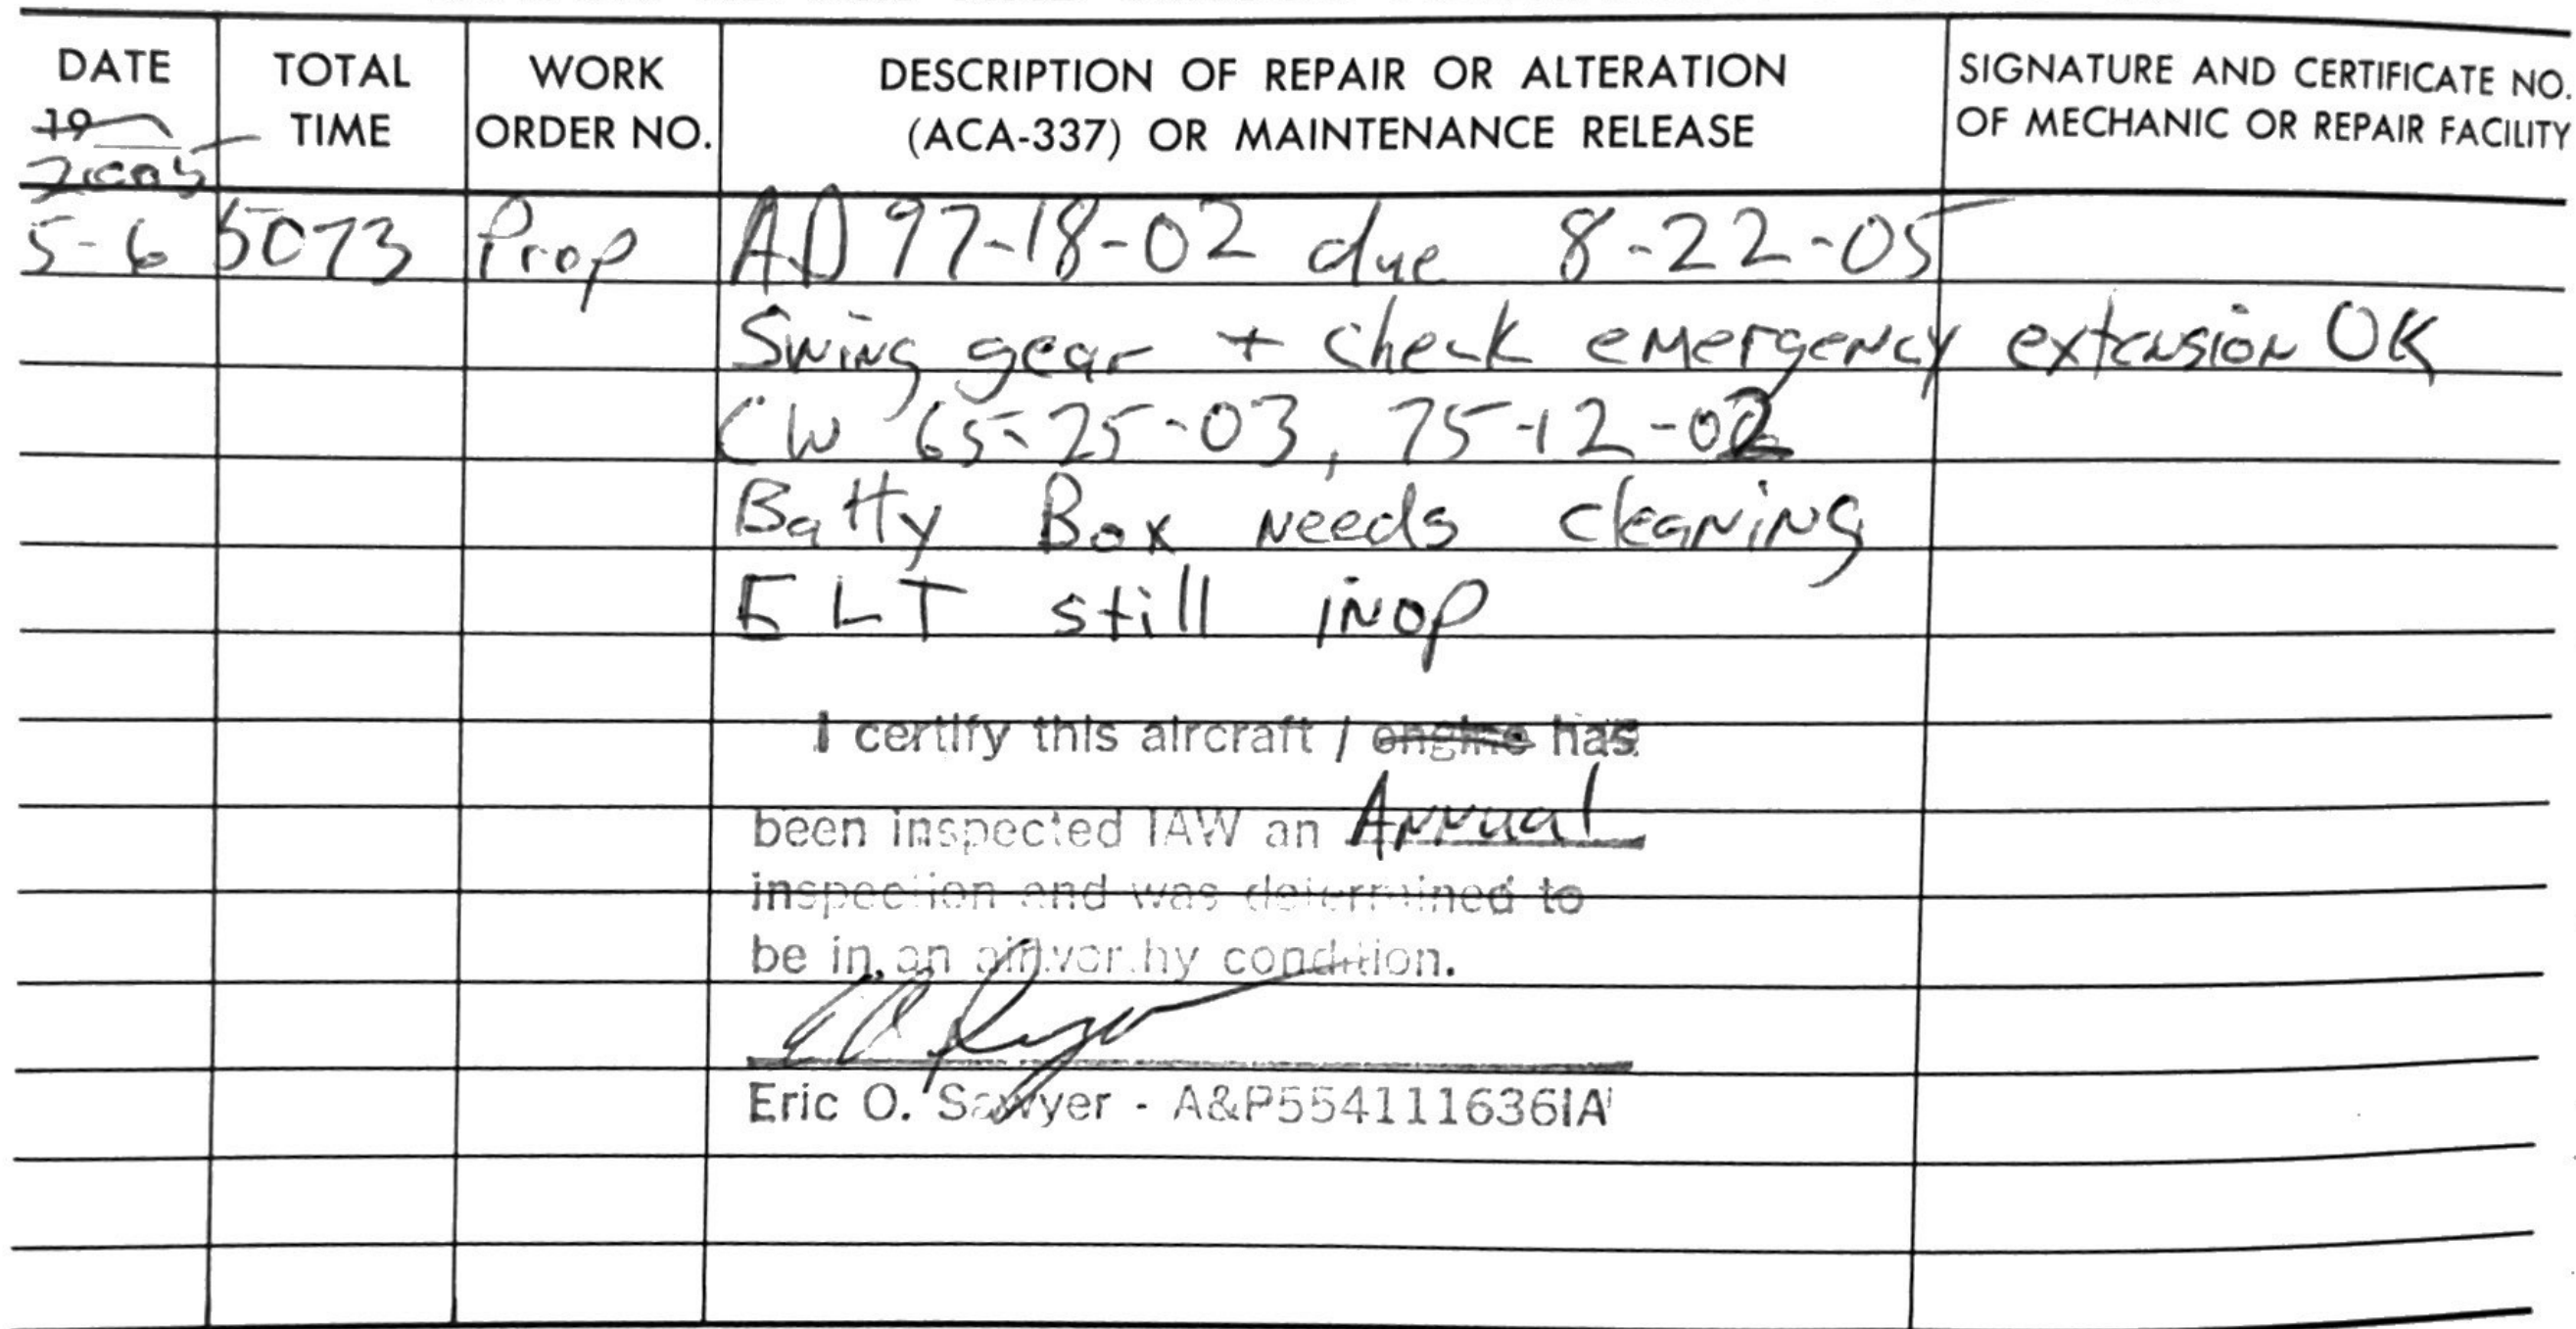 DATE TOTAL TIME WORK ORDER NO. DESCRIPTION OF REPAIR OR ALTERATION (ACA-337) OR MAINTENANCE RELEASE SIGNATURE AND CERTIFICATE NO. OF MECHANIC OR REPAIR FACILITY
19
2005
5-6 5073 Prop AD 97-18-02 due 8-22-05
Swing gear + check emergency extension OK
CW 65-25-03, 75-12-02
Batty Box Needs cleaning
ELT still inop
I certify this aircraft / engine has
been inspected IAW an Annual
inspection and was determined to
be in an airworthy condition.
Eric O. Sawyer - A&P554111636IA